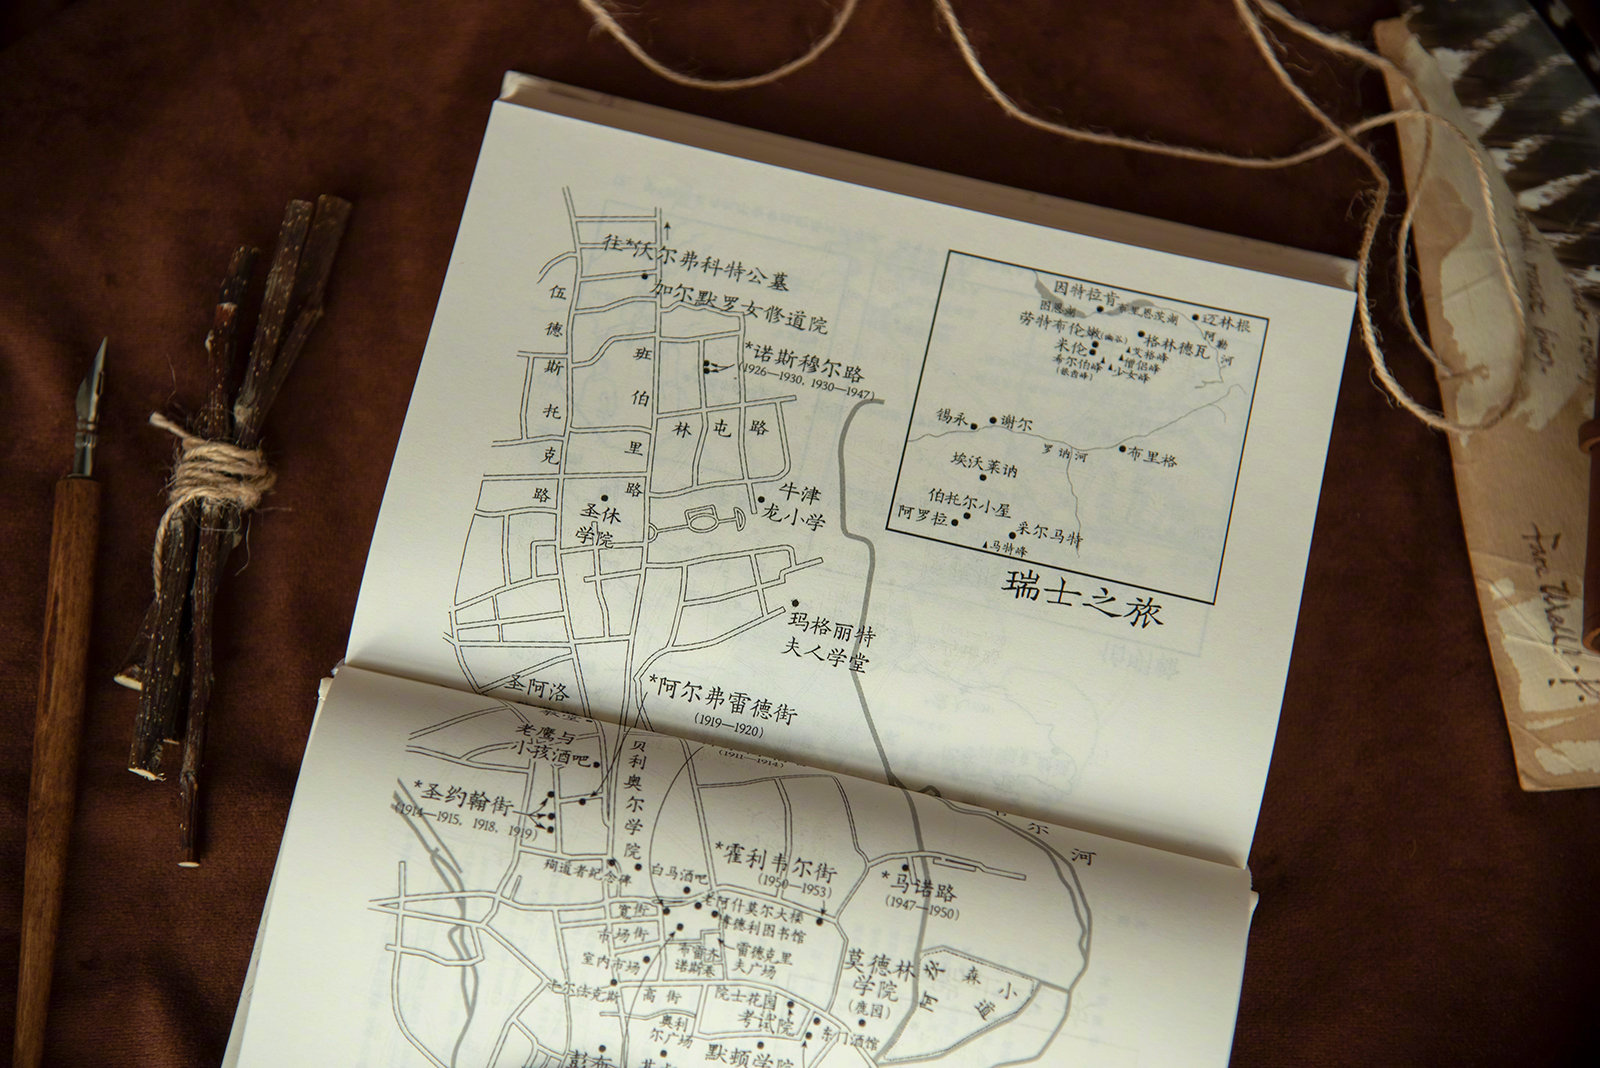 往*沃尔弗科特公墓
加尔默罗女修道院
伍德斯托克路
班伯里路
*诺斯穆尔路
(1926—1930, 1930—1947)
林屯路
圣休
学院
牛津
龙小学
玛格丽特
夫人学堂
因特拉肯
因恩湖
布里恩茨湖
迈林根
阿勒河
劳特布伦嫩(幽谷)
格林德瓦
米伦
艾格峰
僧侣峰
希尔伯峰
(银齿峰)
少女峰
锡永
谢尔
罗讷河
布里格
埃沃莱讷
伯托尔小屋
阿罗拉
采尔马特
马特峰
瑞士之旅
圣阿洛
*阿尔弗雷德街
(1919—1920)
(1911—1914)
老鹰与
小孩酒吧
贝利奥尔学院
*圣约翰街
(1914—1915, 1918, 1919)
殉道者纪念碑
白马酒吧
*霍利韦尔街
(1950—1953)
*马诺路
(1947—1950)
韦尔河
宽街
老阿什莫尔大楼
博德利图书馆
市场街
布雷齐
诺斯巷
雷德克里
夫广场
室内市场
卡尔法克斯
高街
院士花园
考试院
奥利
尔广场
莫德林
学院
(鹿园)
东门酒馆
默顿学院
彭布
森小道
Fra Walli